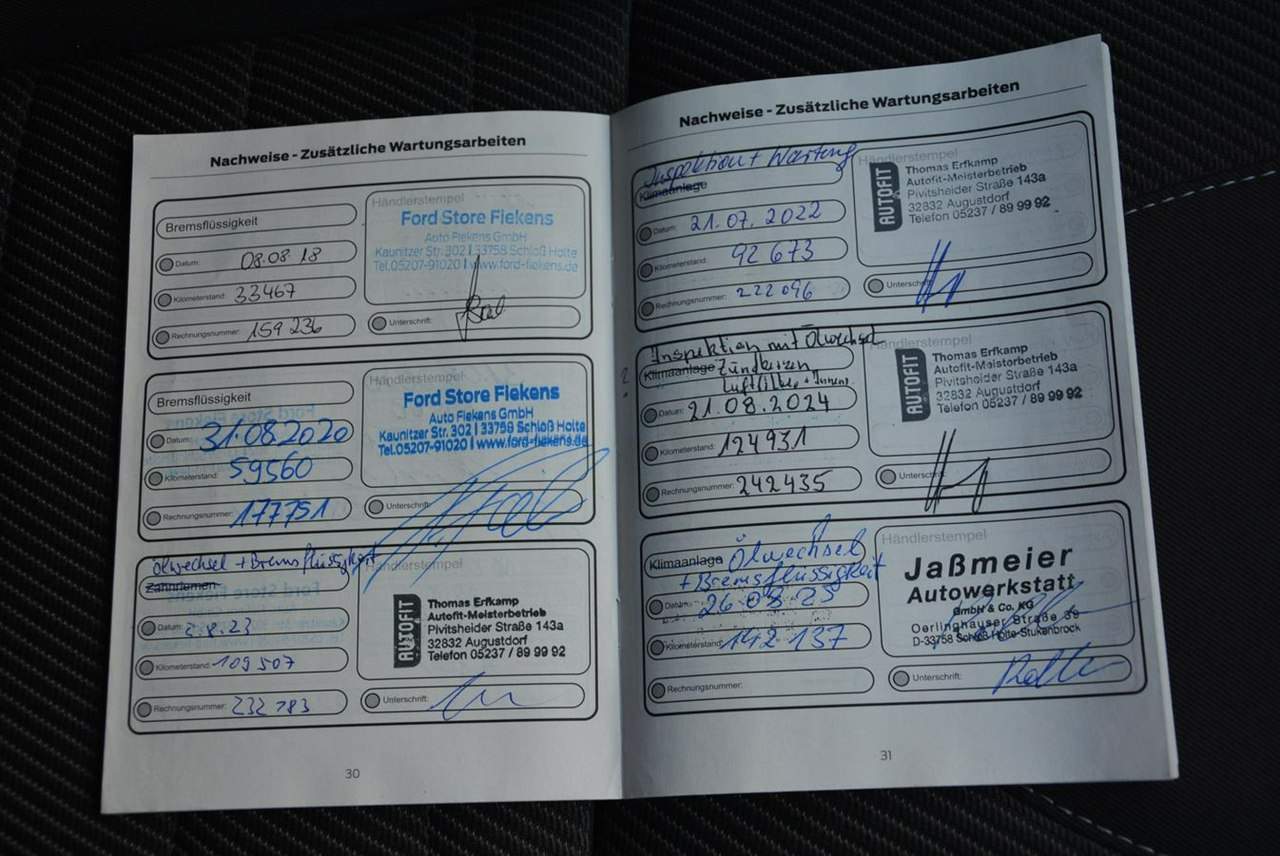 Nachweise - Zusätzliche Wartungsarbeiten
Bremsflüssigkeit
Datum: 08.08 18
Kilometerstand: 33467
Rechnungsnummer: 159 236
Händlerstempel
Ford Store Fiekens
Auto Fiekens GmbH
Kaunitzer Str. 302 | 33758 Schloß Holte
Tel.05207-91020 | www.ford-fiekens.de
Unterschrift:
Bremsflüssigkeit
Datum: 31.08.2020
Kilometerstand: 59560
Rechnungsnummer: 177751
Händlerstempel
Ford Store Fiekens
Auto Fiekens GmbH
Kaunitzer Str. 302 | 33758 Schloß Holte
Tel.05207-91020 | www.ford-fiekens.de
Unterschrift:
Ölwechsel + Bremsflüssigkeit
Zahnriemen
Datum: 2.8.23
Kilometerstand: 109507
Rechnungsnummer: 232783
Händlerstempel
AUTOFIT
Thomas Erfkamp
Autofit-Meisterbetrieb
Pivitsheider Straße 143a
32832 Augustdorf
Telefon 05237 / 89 99 92
Unterschrift:
30
Nachweise - Zusätzliche Wartungsarbeiten
Inspektion + Wartung
Klimaanlage
Datum: 21.07.2022
Kilometerstand: 92 673
Rechnungsnummer: 222 096
Händlerstempel
AUTOFIT
Thomas Erfkamp
Autofit-Meisterbetrieb
Pivitsheider Straße 143a
32832 Augustdorf
Telefon 05237 / 89 99 92
Unterschrift:
Inspektion mit Ölwechsel
Klimaanlage Zündkerzen
Luftfilter + Innenr.
Datum: 21.08.2024
Kilometerstand: 124931
Rechnungsnummer: 242435
Händlerstempel
AUTOFIT
Thomas Erfkamp
Autofit-Meisterbetrieb
Pivitsheider Straße 143a
32832 Augustdorf
Telefon 05237 / 89 99 92
Unterschrift:
Klimaanlage Ölwechsel
+ Bremsflüssigkeit
Datum: 26.08.25
Kilometerstand: 142 137
Rechnungsnummer:
Händlerstempel
Jaßmeier
Autowerkstatt
GmbH & Co. KG
Oerlinghauser Straße 39
D-33758 Schloß Holte-Stukenbrock
Unterschrift:
31